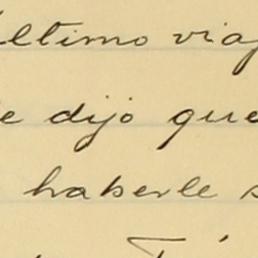 último viaj
e dijo que
haberle s